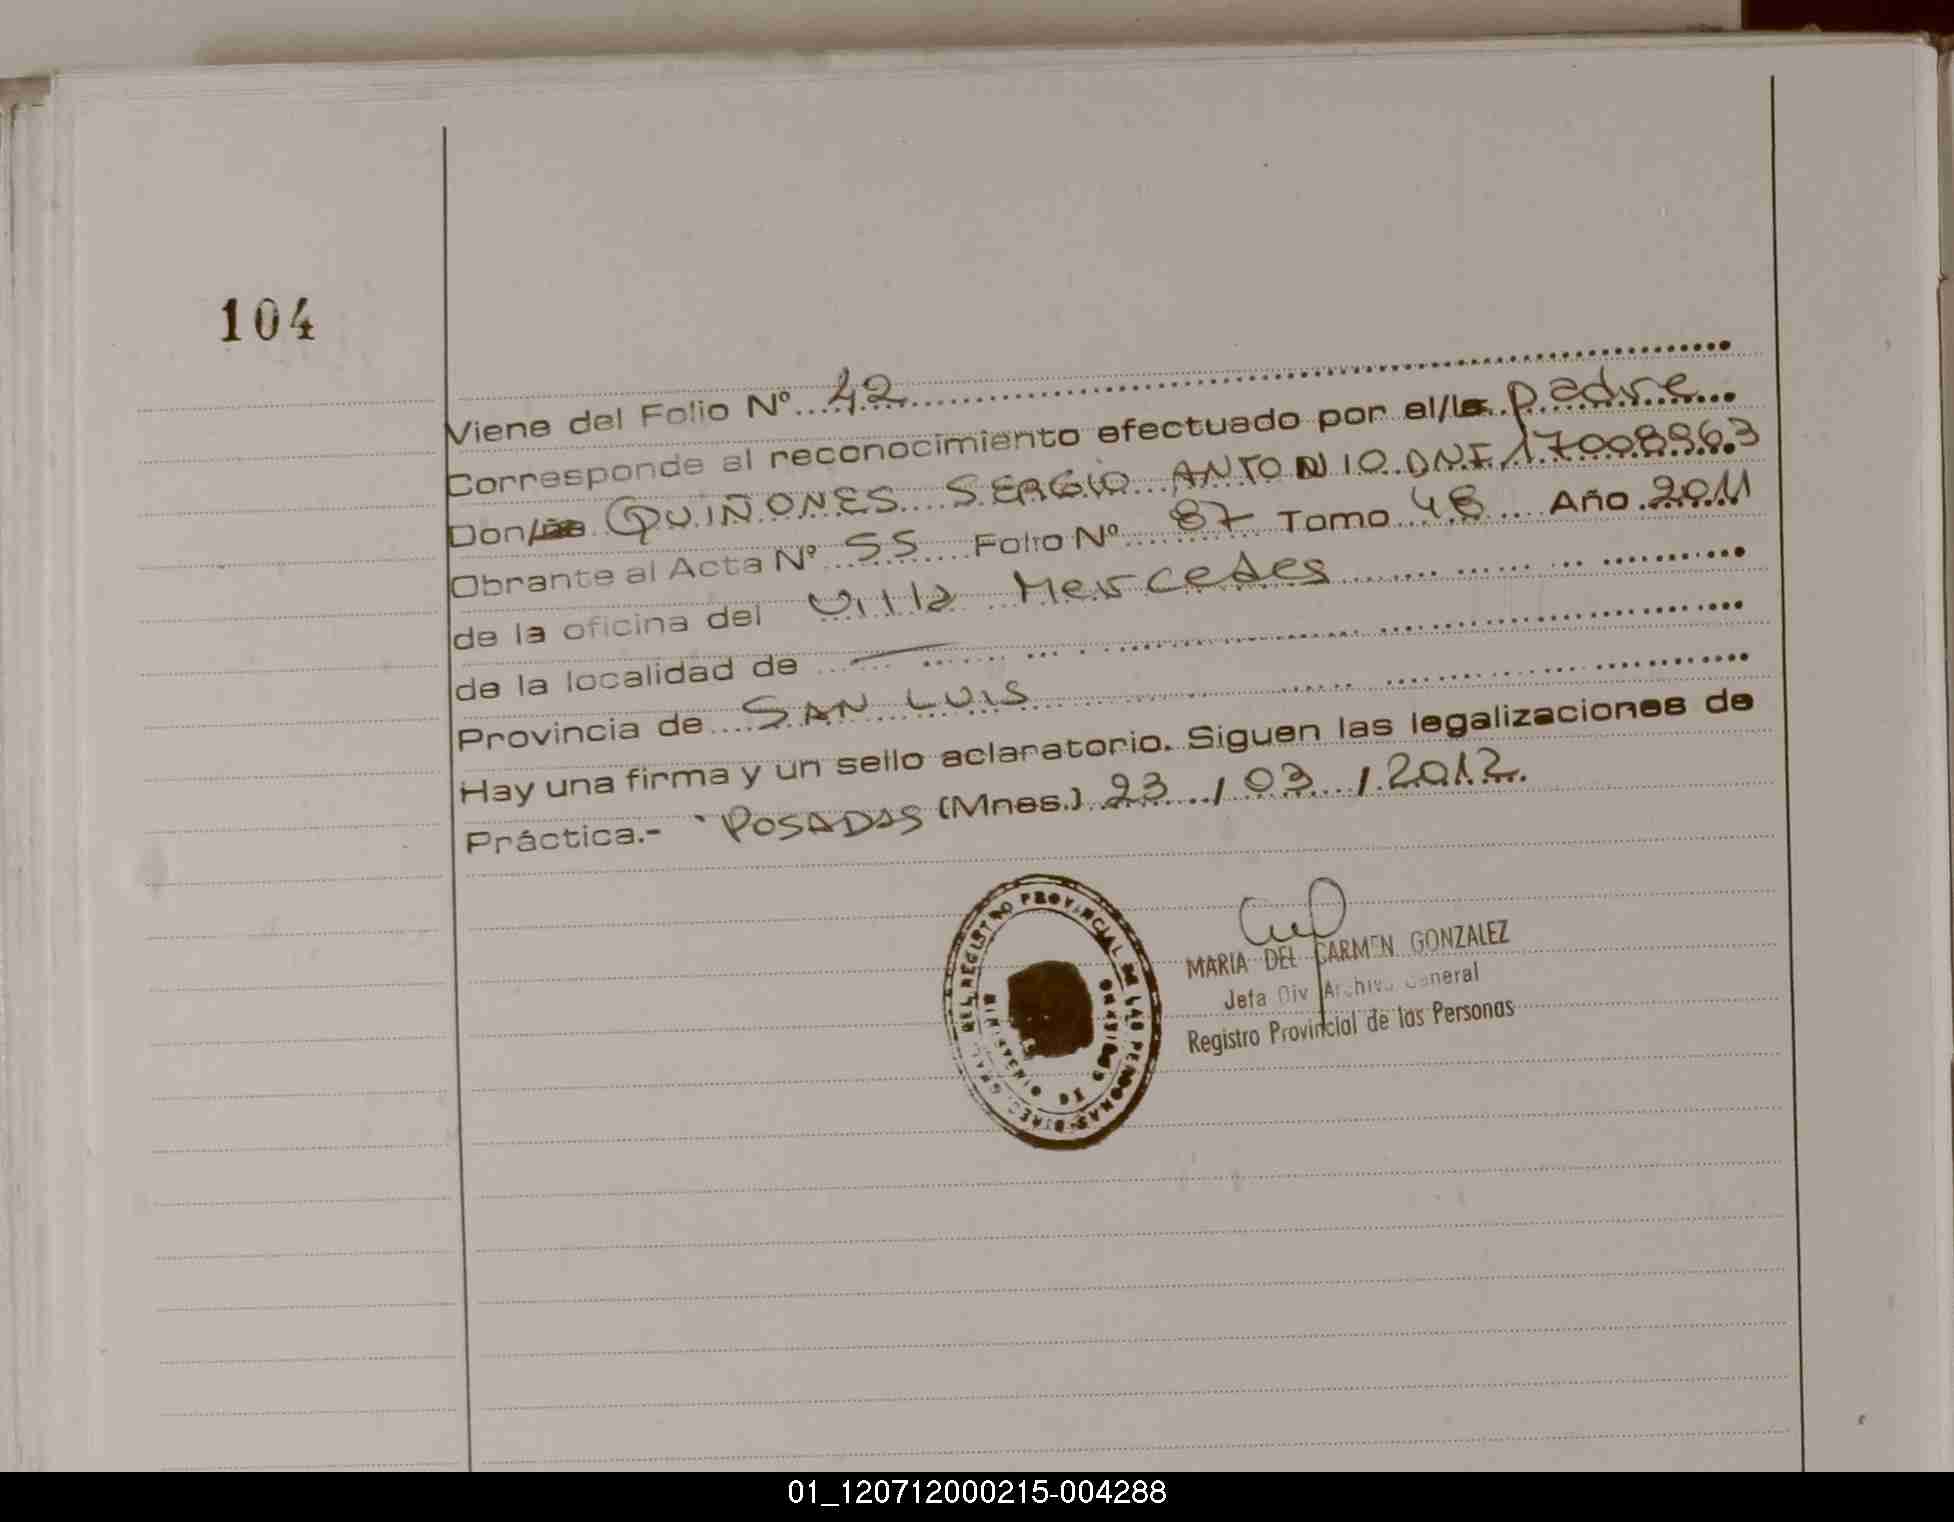 104
Viene del Folio Nº 42
Corresponde al reconocimiento efectuado por el/la padre
Don/ña QUIÑONES SERGIO ANTONIO DNI 17008963
Obrante al Acta Nº 55 Folio Nº 87 Tomo 48 Año 2011
de la oficina del Villa Mercedes
de la localidad de
Provincia de SAN LUIS
Hay una firma y un sello aclaratorio. Siguen las legalizaciones de
Práctica.- POSADAS (Mnes.) 23 / 03 / 2012.
REL REGISTRO PROVINCIAL DE LAS PERSONAS DIREC. GRAL.
MINISTERIO DE GOBIERNO
MARIA DEL CARMEN GONZALEZ
Jefa Div Archivo General
Registro Provincial de las Personas
01_120712000215-004288